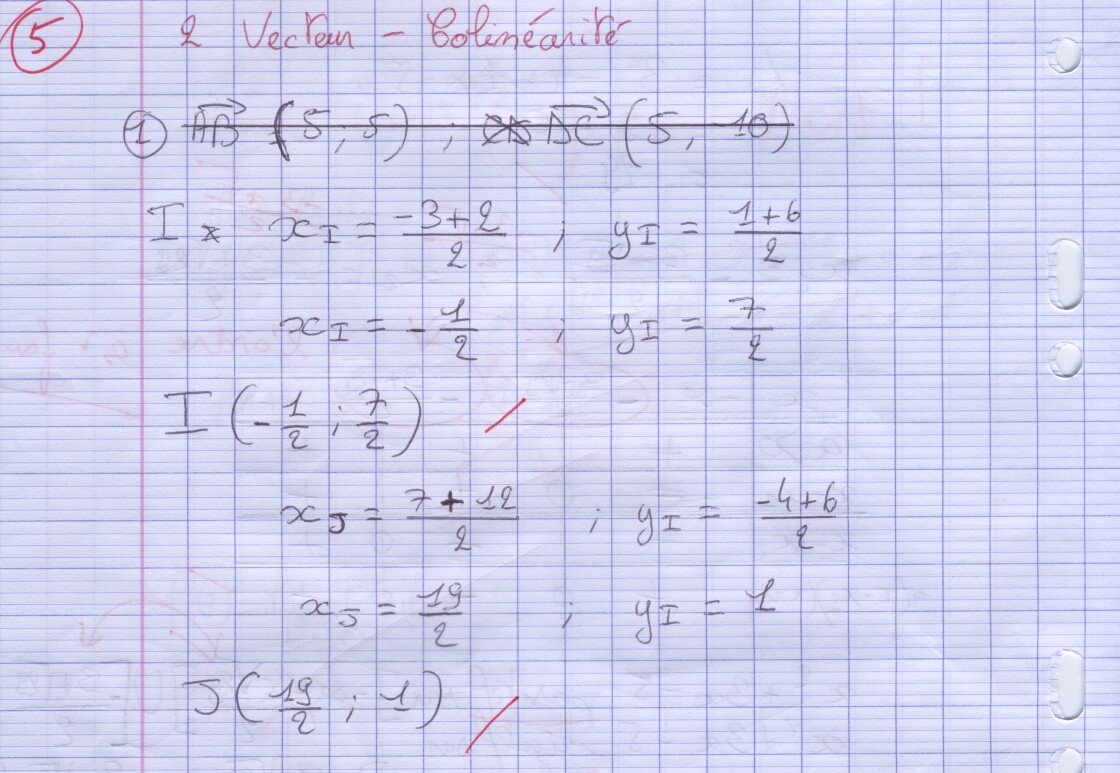 5 2 Vecteur - Colinéarité
1 AB (5 ; 5) ; DC (5 ; -10)
I x_I = (-3+2)/2 ; y_I = (1+6)/2
x_I = -1/2 ; y_I = 7/2
I (-1/2 ; 7/2)
x_J = (7+12)/2 ; y_I = (-4+6)/2
x_J = 19/2 ; y_I = 1
J (19/2 ; 1)